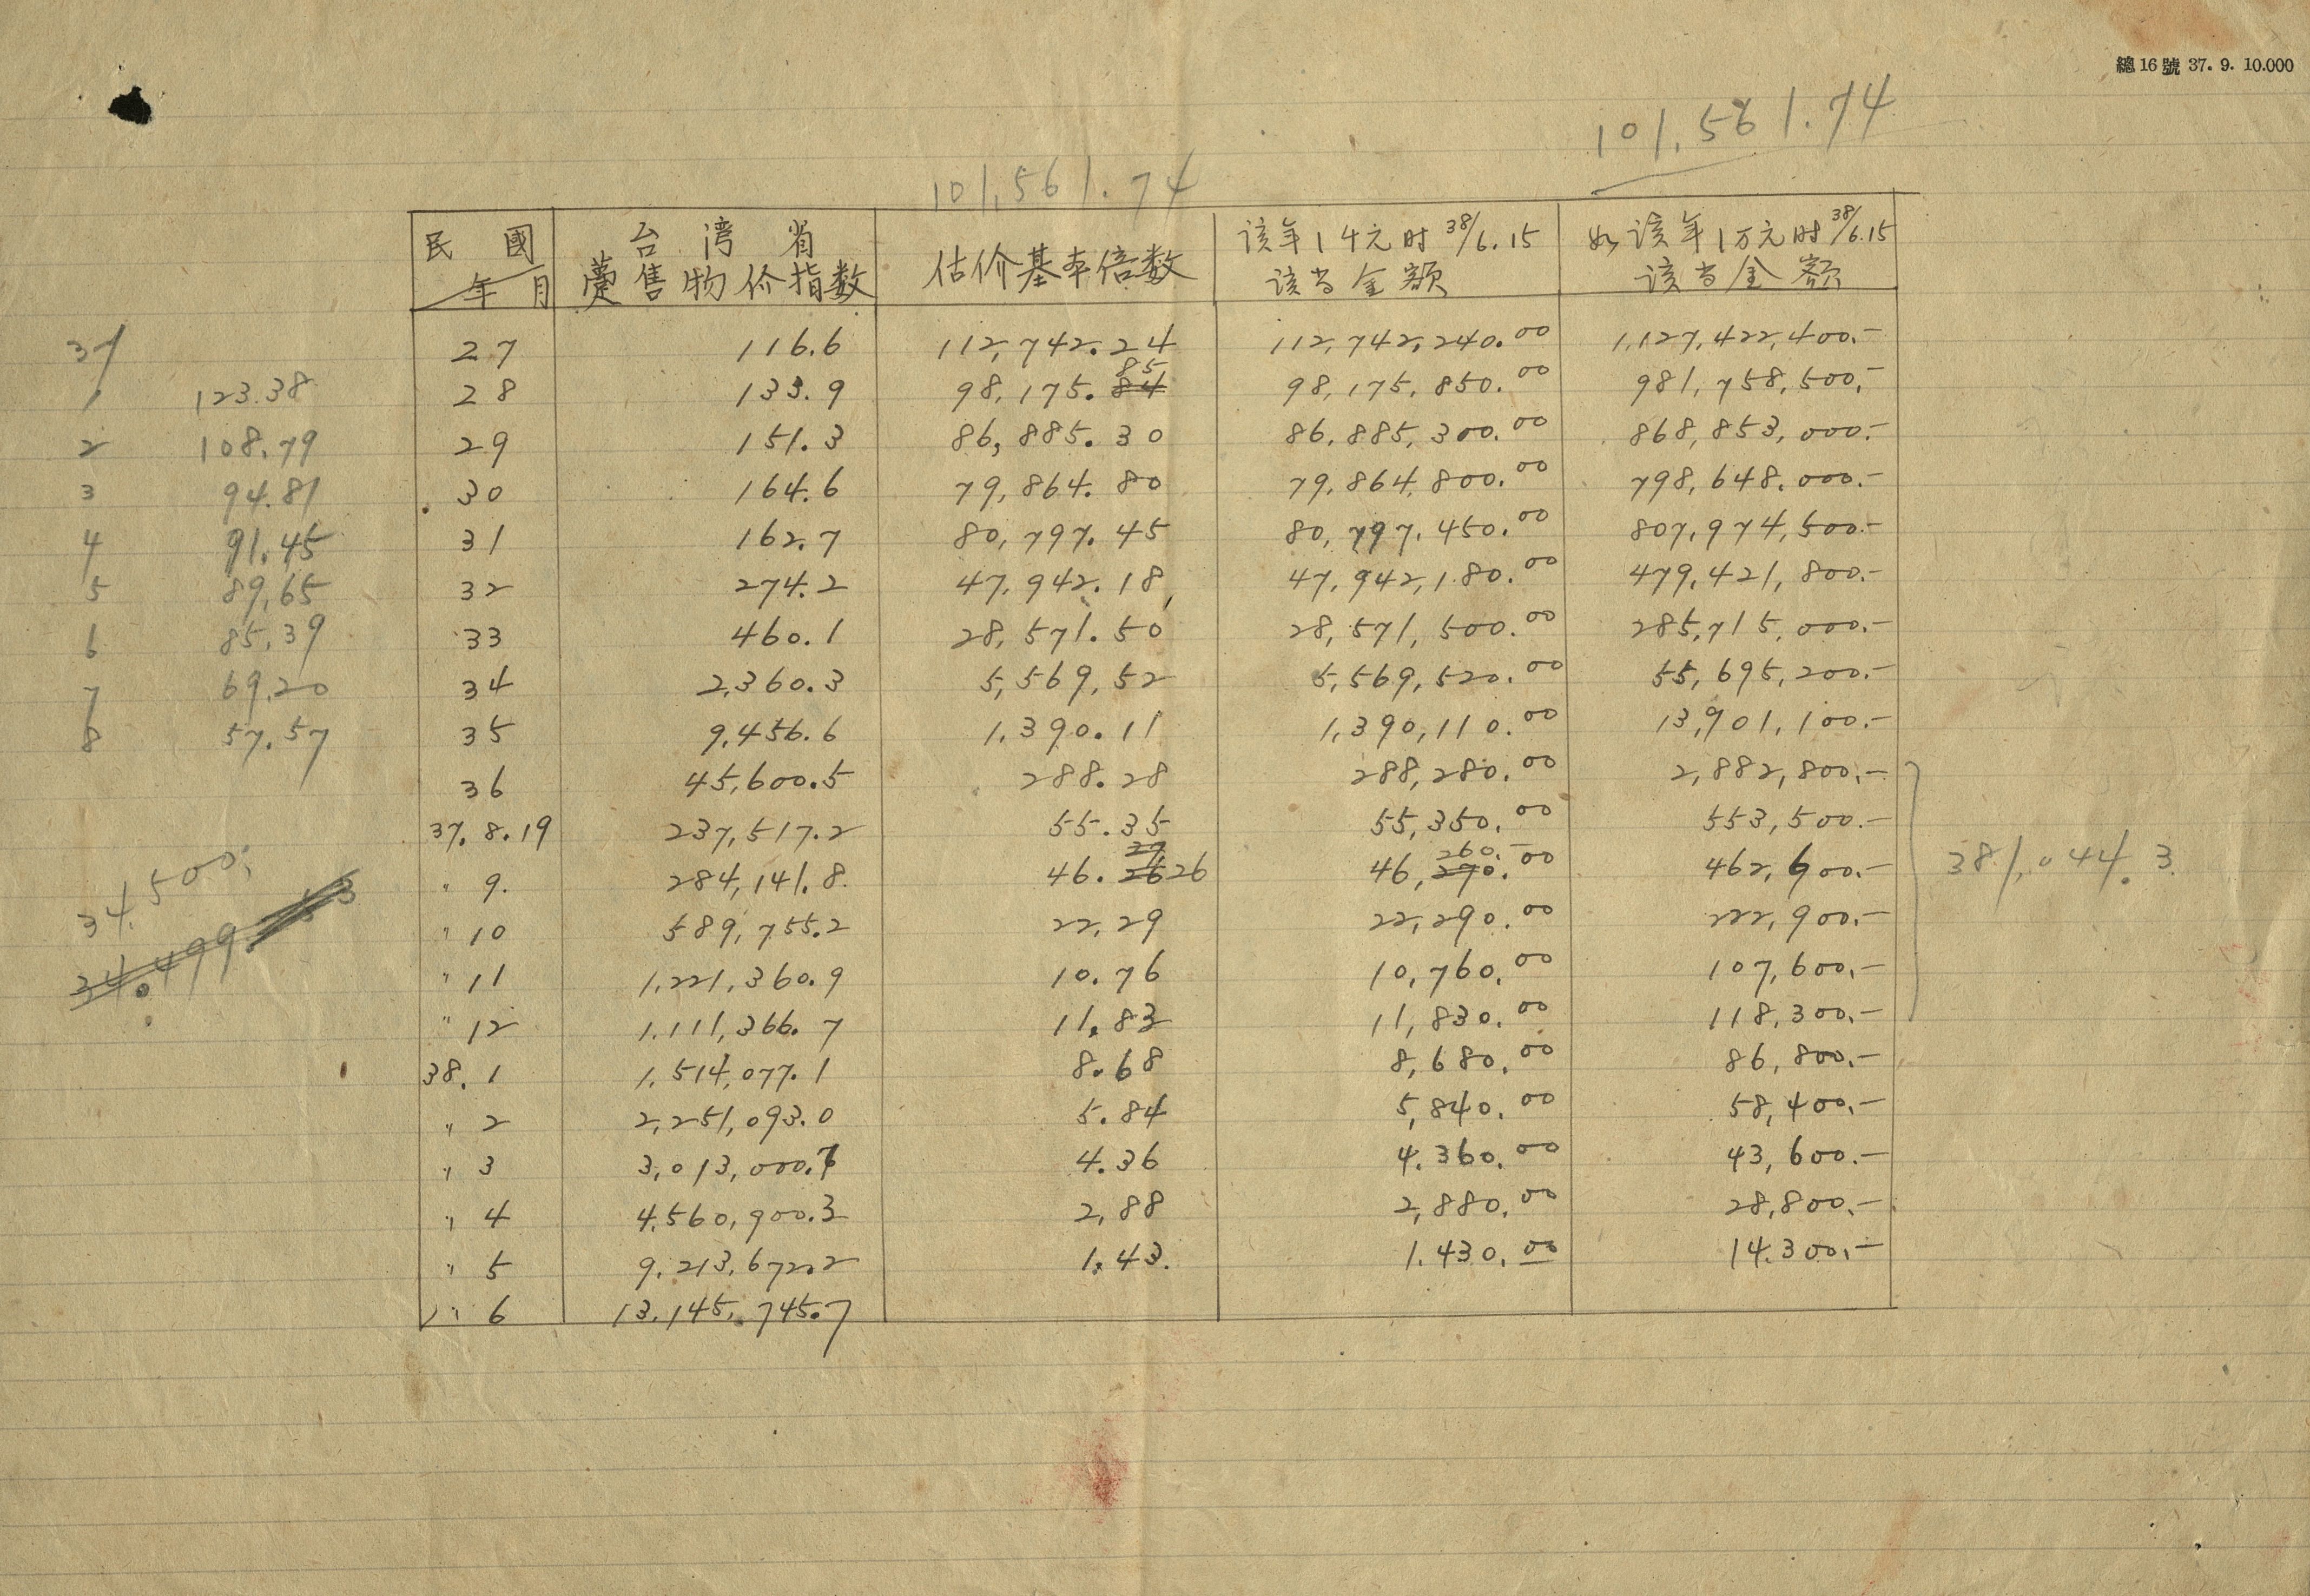 總16號 37. 9. 10.000
101,561.74
101,561.74
民國 年月 台湾省躉售物价指数 估价基本倍数 该年1千元时 38/6.15 该当金额 如该年1万元时 38/6.15 该当金额
27 116.6 112,742.24 112,742,240.00 1,127,422,400.-
28 133.9 98,175.85 98,175,850.00 981,758,500.-
29 151.3 86,885.30 86,885,300.00 868,853,000.-
30 164.6 79,864.80 79,864,800.00 798,648,000.-
31 162.7 80,797.45 80,797,450.00 807,974,500.-
32 274.2 47,942.18 47,942,180.00 479,421,800.-
33 460.1 28,571.50 28,571,500.00 285,715,000.-
34 2,360.3 5,569,52 5,569,520.00 55,695,200.-
35 9,456.6 1,390.11 1,390,110.00 13,901,100.-
36 45,600.5 288.28 288,280.00 2,882,800.-
37.8.19 237,517.2 55.35 55,350.00 553,500.-
" 9. 284,141.8 46.26 46,260.- 462,600.-
" 10 589,755.2 22,29 22,290.00 222,900.-
" 11 1,221,360.9 10.76 10,760.00 107,600.-
" 12 1,111,366.7 11,83 11,830.00 118,300.-
38.1 1,514,077.1 8.68 8,680.00 86,800.-
" 2 2,251,093.0 5.84 5,840.00 58,400.-
" 3 3,013,000.7 4.36 4,360.00 43,600.-
" 4 4,560,900.3 2,88 2,880.00 28,800.-
" 5 9,213,672.2 1.43. 1,430.00 14,300.-
" 6 13,145,745.7
37/
1 123.38
2 108.79
3 94.81
4 91.45
5 89,65
6 85,39
7 69.20
8 57.57
34,500.
381,044.3